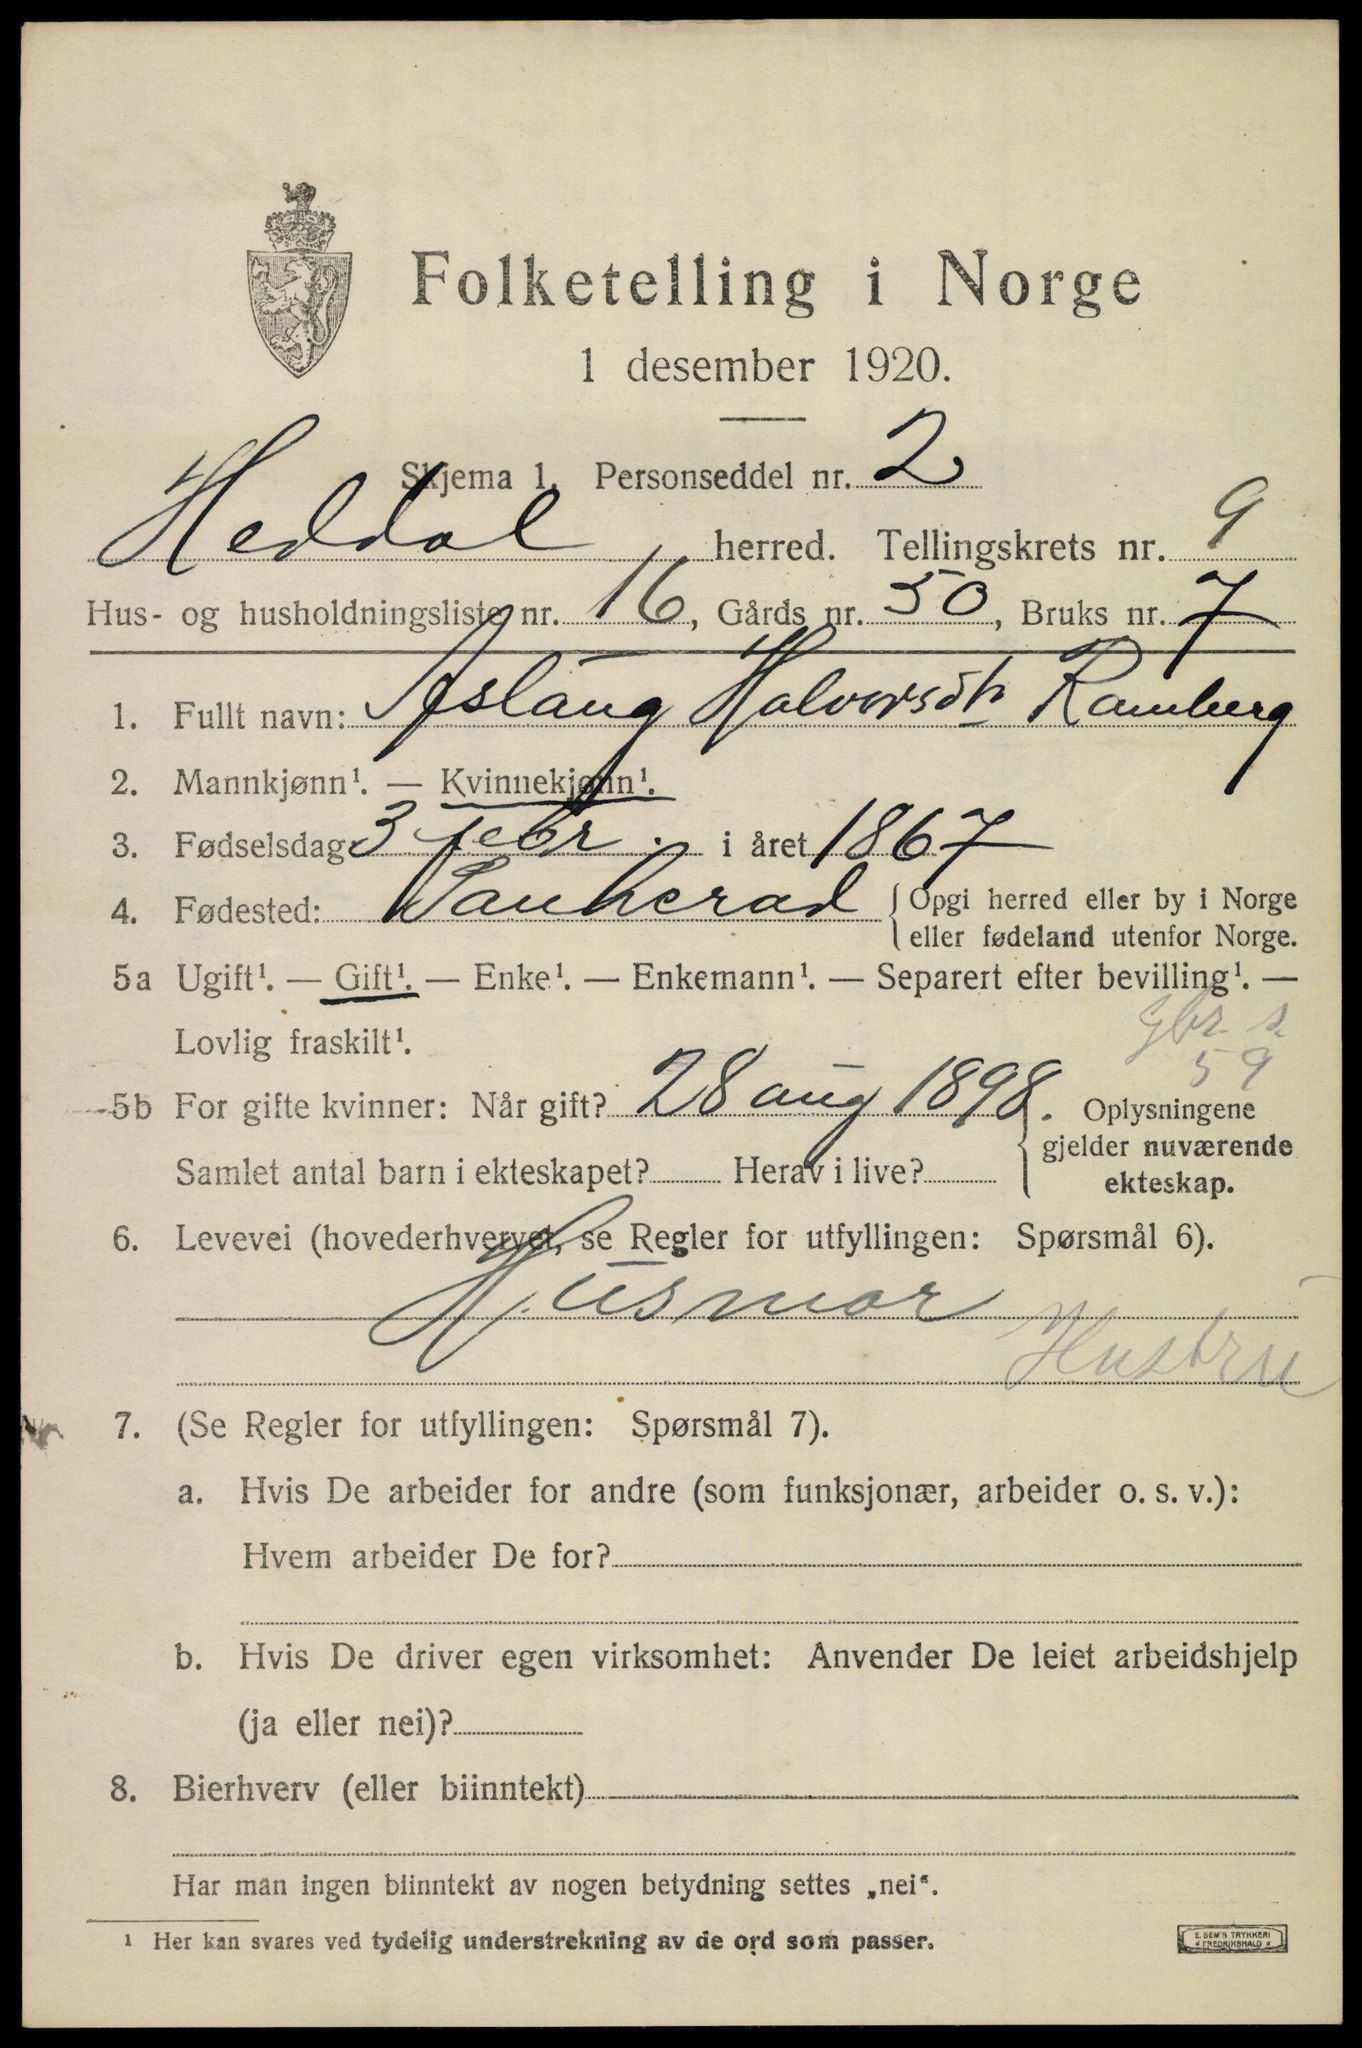 Folketelling i Norge
1 desember 1920.
Skjema 1. Personseddel nr. 2
Heddal herred. Tellingskrets nr. 9
Hus- og husholdningsliste nr. 16, Gårds nr. 50, Bruks nr. 7
1. Fullt navn: Aslaug Halvorsdtr Ramberg
2. Mannkjønn¹. — Kvinnekjønn¹.
3. Fødselsdag 3 febr. i året 1867
4. Fødested: Sauherad {Opgi herred eller by i Norge
eller fødeland utenfor Norge.
5a Ugift¹. — Gift¹. — Enke¹. — Enkemann¹. — Separert efter bevilling¹. —
Lovlig fraskilt¹.
gbr. s
59
5b For gifte kvinner: Når gift? 28 aug 1898. Oplysningene
gjelder nuværende
Samlet antal barn i ekteskapet? Herav i live? ekteskap.
6. Levevei (hovederhvervet, se Regler for utfyllingen: Spørsmål 6).
Husmor
Hustru
7. (Se Regler for utfyllingen: Spørsmål 7).
a. Hvis De arbeider for andre (som funksjonær, arbeider o. s. v.):
Hvem arbeider De for?
b. Hvis De driver egen virksomhet: Anvender De leiet arbeidshjelp
(ja eller nei)?
8. Bierhverv (eller biinntekt)
Har man ingen biinntekt av nogen betydning settes „nei“.
¹ Her kan svares ved tydelig understrekning av de ord som passer.
E. SEM'S TRYKKERI
FREDRIKSHALD